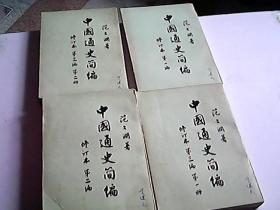 范文澜著
中國通史简编
修订本 第三编 第二册
范文澜著
中國通史简编
范文澜著
中國通史简编
修订本 第二编
范文澜著
中國通史简编
修订本 第三编 第一册